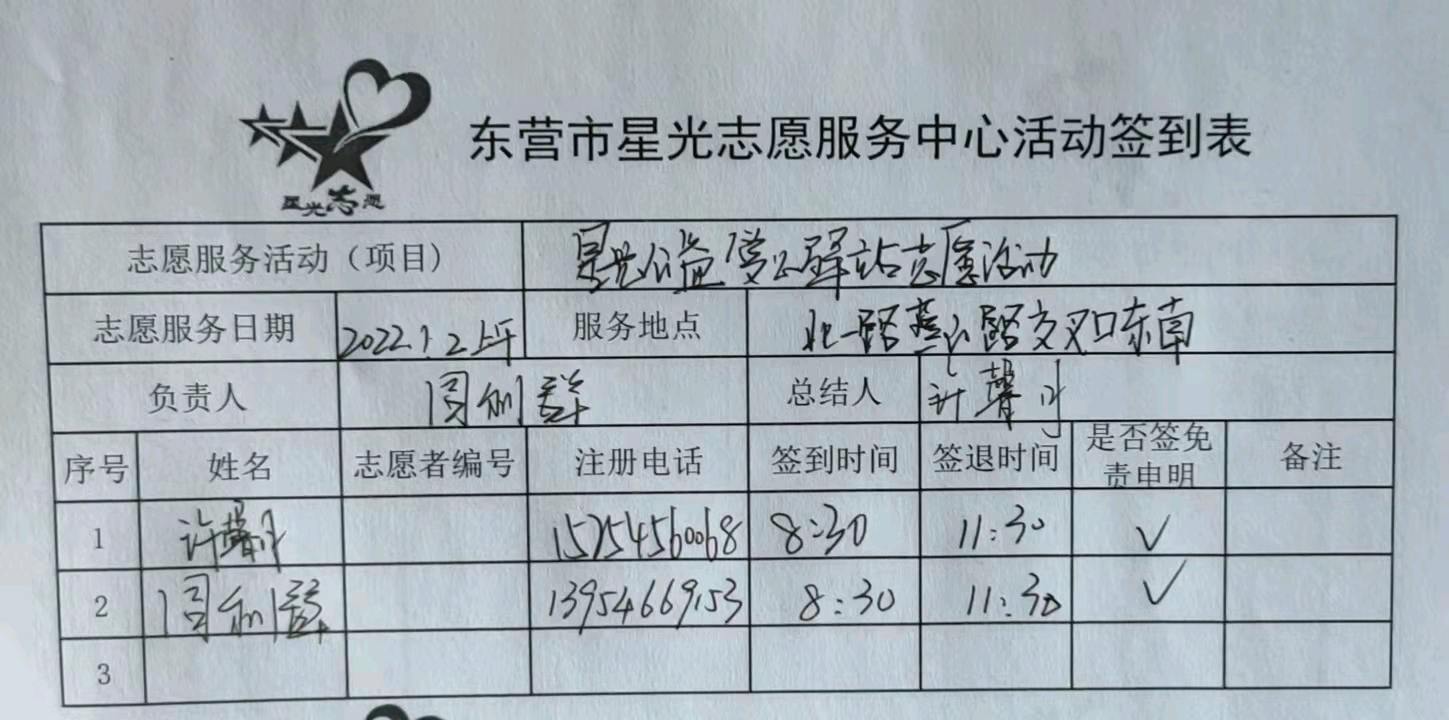 星光志愿
东营市星光志愿服务中心活动签到表
志愿服务活动（项目） 星光公益爱心驿站志愿活动
志愿服务日期 2022.1.2上午 服务地点 北一路燕山路交叉口东南
负责人 周利群 总结人 许馨月
序号 姓名 志愿者编号 注册电话 签到时间 签退时间 是否签免责申明 备注
1 许馨月 15254560068 8:30 11:30 ✓
2 周利群 13954669153 8:30 11:30 ✓
3